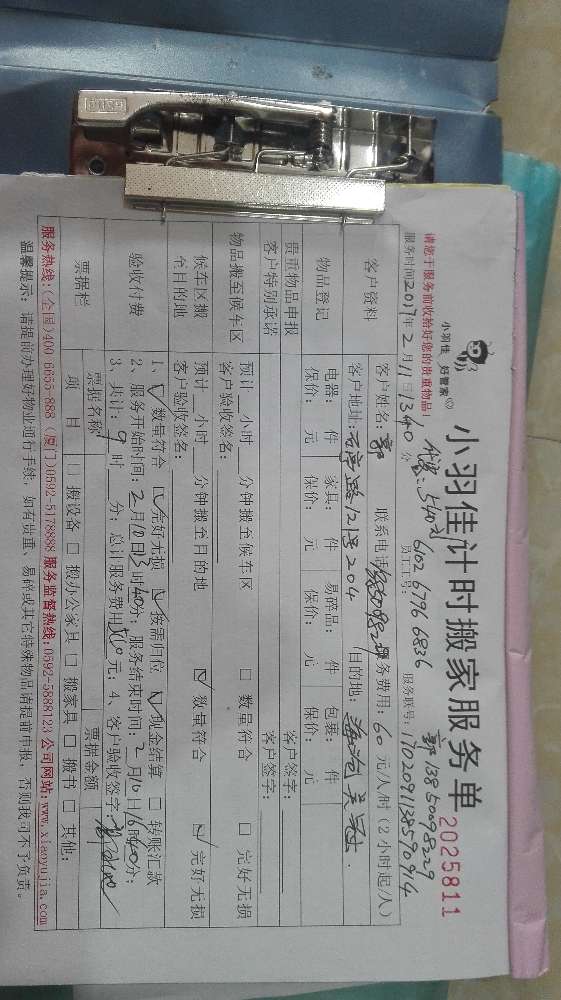 小羽佳 好管家
小羽佳计时搬家服务单
2025811
请您于服务前收拾好您的贵重物品!
服务时间2017年2月11日1340分
540元
员工工号:
6102 6796 6836
郭13850098229
服务联号:1702091138590914
客户资料
客户姓名:郭
联系电话
服务费用:60元/人/时(2小时起/人)
客户地址:路121号204
目的地:海沧
物品登记
电器: 件 家具: 件 易碎品: 件 包裹: 件
保价: 元 保价: 元 保价: 元 保价: 元
贵重物品申报
客户签字:
客户特别承诺
客户签字:
物品搬至候车区
预计__小时____分钟搬至候车区 □ 数量符合 □ 完好无损
客户验收签名:
候车区搬至目的地
预计__小时____分钟搬至目的地 ☑ 数量符合 ☑ 完好无损
客户验收签名:
验收付费
1、☑ 数量符合 ☑ 完好无损 ☑ 按需归位 ☑ 现金结算 □ 转账汇款
2、服务开始时间:2月10日13时40分; 服务结束时间:2月10日16时40分;
3、共计:9时__分; 总计服务费用540元; 4、客户验收签字:
票据栏
票据名称
票据金额
项 目
□ 搬设备 □ 搬办公家具 □ 搬家具 □ 搬书 □ 其他:
服务热线:(全国)400 6655-888 (厦门)0592-5178888 服务监督热线:0592-5888123 公司网站:www.xiaoyujia.com
温馨提示: 请提前办理好物业通行手续, 如有贵重、易碎或其它特殊物品请提前申报, 否则我司不予负责。